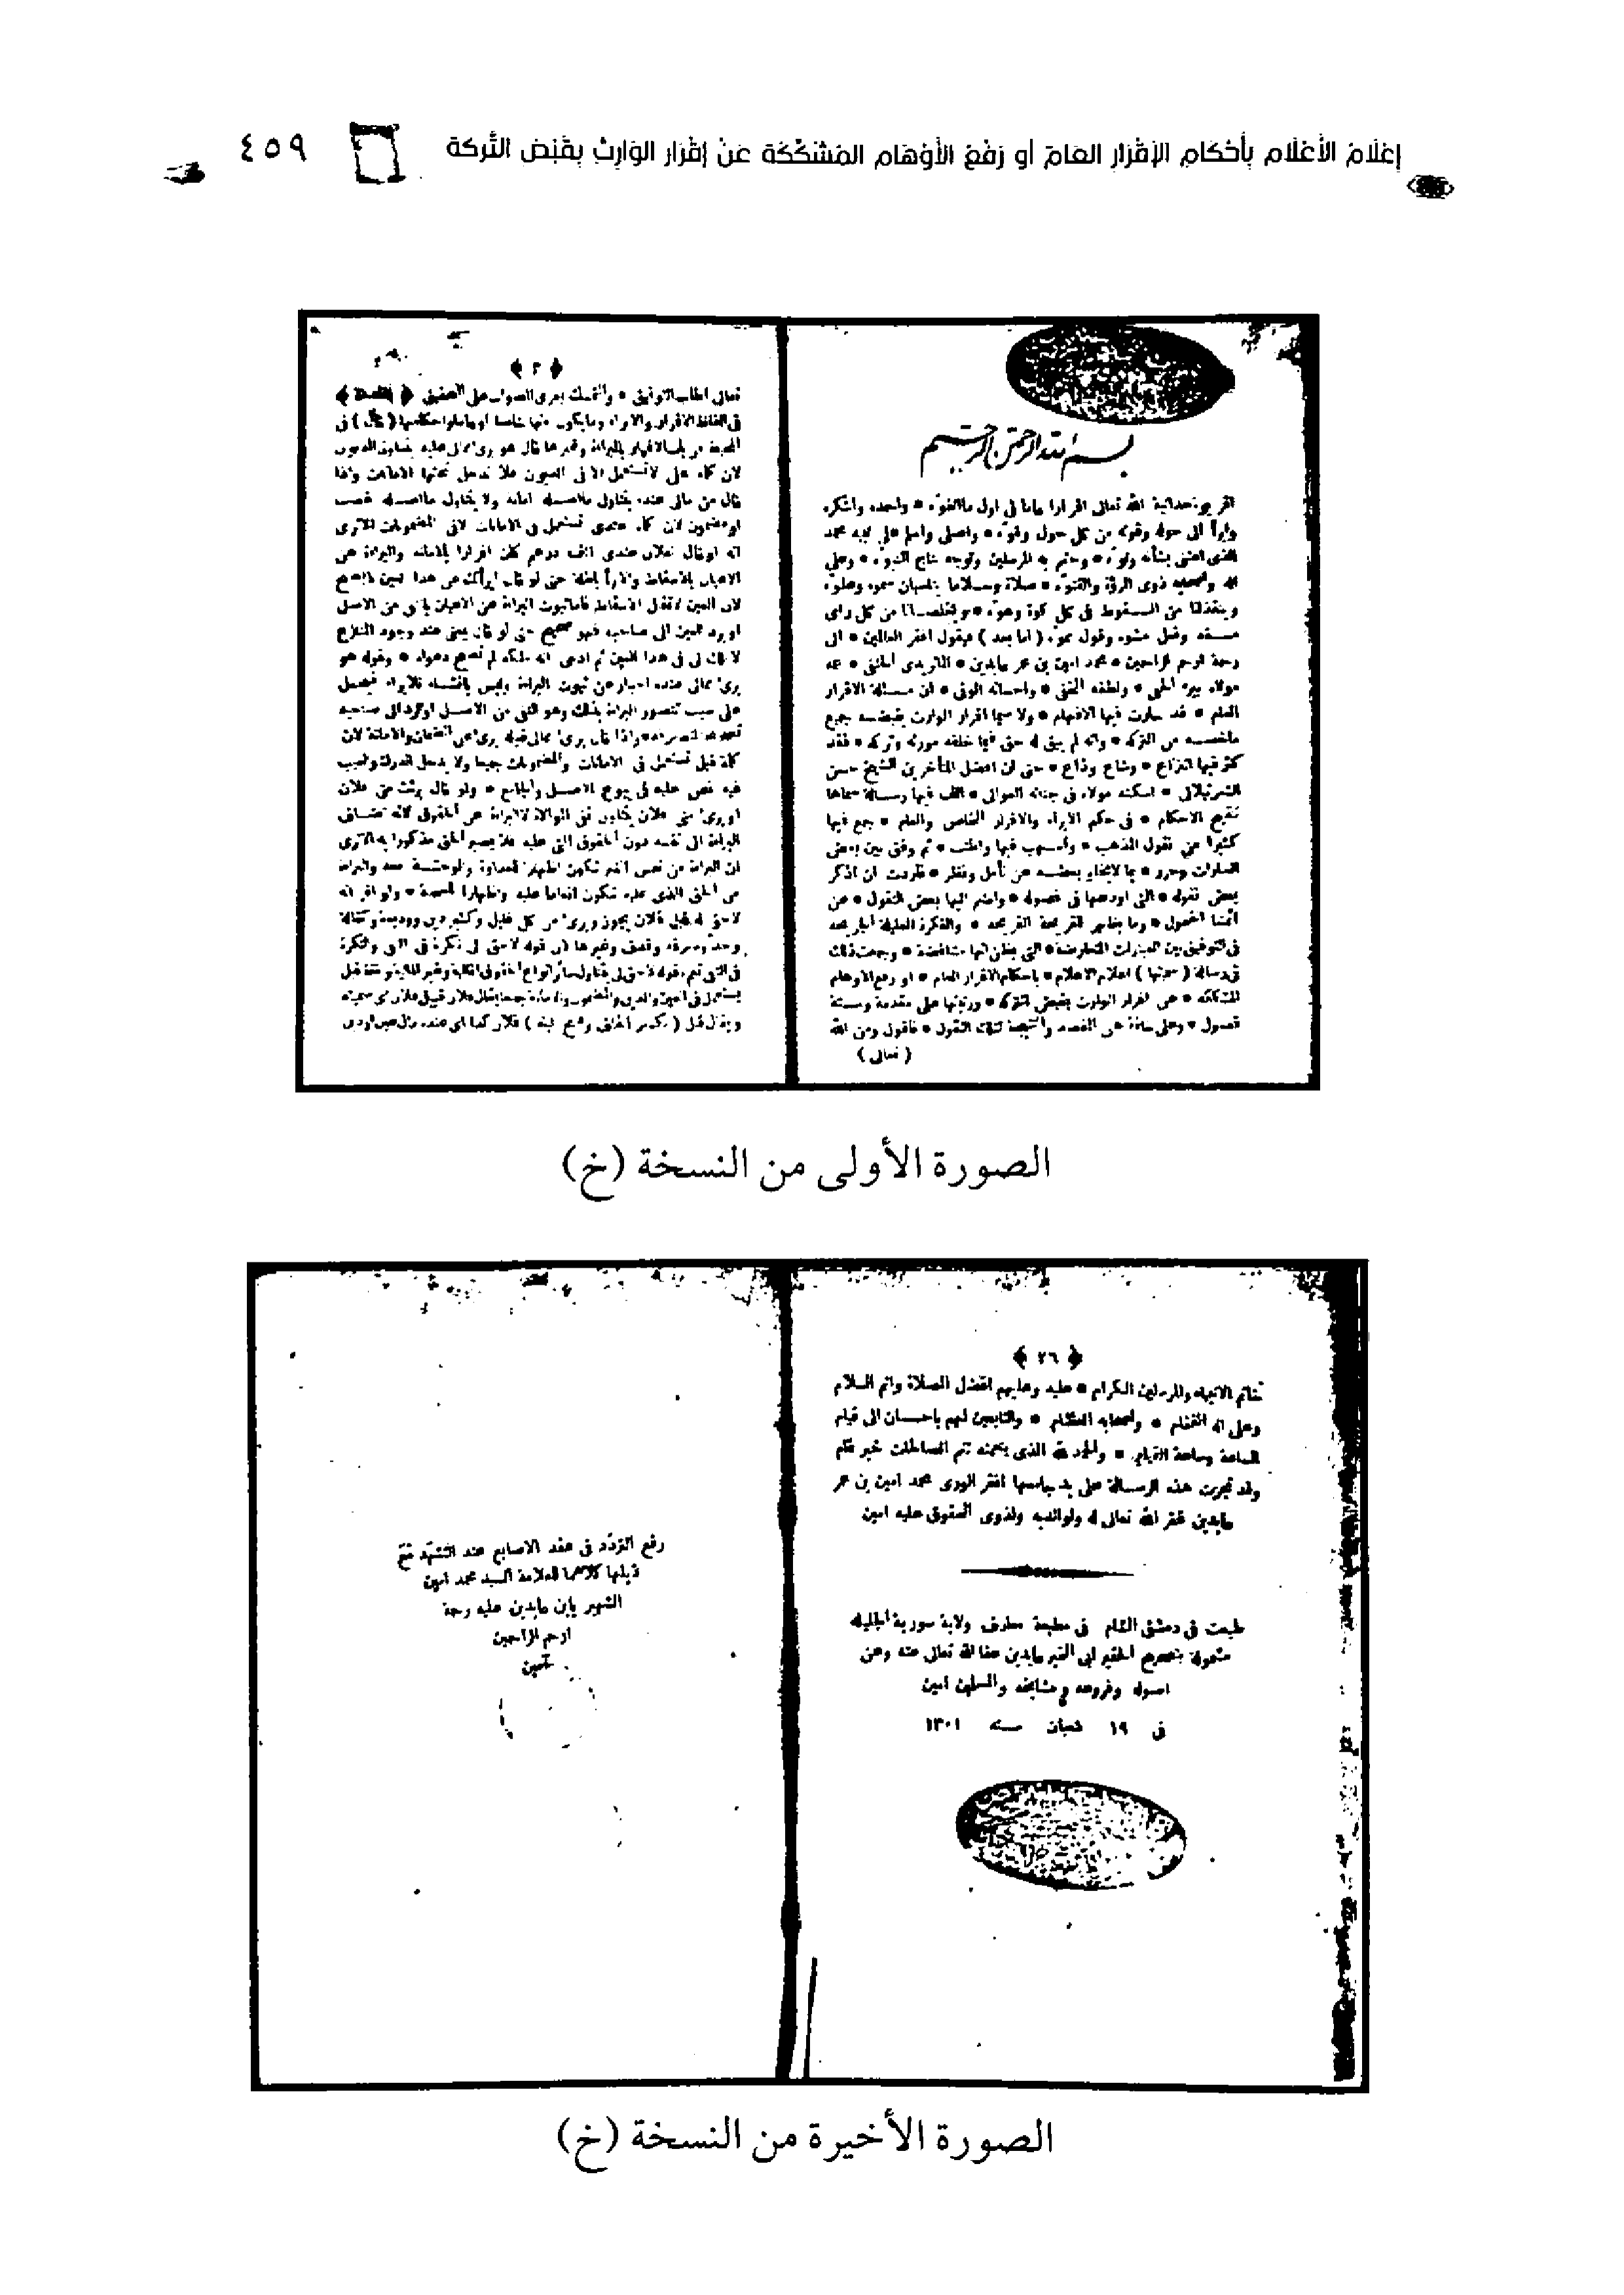 إعلام الأعلام بأحكام الإقرار العام أو رفع الأوهام المشككة عن إقرار الوارث بقبض التركة ٤٥٩
بسم الله الرحمن الرحيم
اقر بوحدانية الله تعالى اقرارا عاما فى اول ما اتفوه * واحمده واشكره
وابرأ الى حوله وقوته من كل حول وقوة * واصلى واسلم على نبيه محمد
الذى اعتنى بشأنه ونوه * وختم به المرسلين وتوجه بتاج النبوة * وعلى
آله واصحابه ذوى المروة والفتوة * صلاة وسلاما
وينقذانا من السقوط فى كل كوة وهوة * من كل راى
وقول مموه ( اما بعد ) فيقول افقر العالمين * الى
رحمة ارحم الراحمين * محمد امين بن عمر عابدين * الماتريدى الحنفى * عمه
مولاه ببره الخفى * ولطفه الحفى * واحسانه الوفى * ان مسئلة الاقرار
العام * قد حارت فيها الافهام * ولا سيما اقرار الوارث بقبضه جميع
ماخصه من التركة * وانه لم يبق له حق فيما خلفه مورثه وتركه * فقد
كثر فيها النزاع * وشاع وذاع * حتى ان افضل المتأخرين الشيخ حسن
الشرنبلالى * اسكنه مولاه فى جنانه العوالى * الف فيها رسالة سماها
تنقيح الاحكام * فى حكم الابراء والاقرار الخاص والعام * جمع فيها
كثيرا من نقول المذهب * واسهب فيها واطنب * ثم وفق بين بعض
العبارات وحرر * بما لايخلو بعضه عن تأمل ونظر * فاردت ان اذكر
بعض نقوله * التى اودعها فى فصوله * واضم اليها بعض النقول * عن
ائمتنا الفحول * وما يظهر لقريحة القريحه * والفكرة العليلة الجريحه
فى التوفيق بين العبارات المتعارضة * التى يظن انها متناقضة * وجمعت ذلك
فى رسالة ( سميتها ) اعلام الاعلام * باحكام الاقرار العام * او رفع الاوهام
المشككة * عن اقرار الوارث بقبض التركة * ورتبتها على مقدمة وستة
فصول * وعلى خاتمة هى القصد والنتيجة لتلك النقول * فاقول ومن الله
( تعالى )
﴿ ٢ ﴾
تعالى اطلب التوفيق * والتمسك بعرى الصواب على التحقيق ﴿ المقدمة ﴾
فى الفاظ الاقرار والابراء وما يكون منها خاصا او عاما واحكامها ( قال ) فى
المحيط من باب الاقرار بالبراءة وغيرها قال هو برئ مما لى عليه يتناول الديون
لان كلمة على لا تستعمل الا فى الديون فلا تدخل تحتها الامانات واذا
قال من مالى عنده يتناول ما اصله امانة ولا يتناول ما اصله غصب
او مضمون لان كلمة عندى تستعمل فى الامانات لا فى المضمونات الا ترى
انه لو قال لفلان عندى الف درهم كان اقرارا بالامانة والبراءة عن
الاعيان بالاسقاط والابراء باطلة حتى لو قال ابرأتك عن هذا العين لا يصح
لان العين لا تقبل الاسقاط فاما ثبوت البراءة عن الاعيان بالنفى من الاصل
او برد العين الى صاحبه فهو صحيح حتى لو قال عند وجود النزاع
لا ملك لى فى هذا العين ثم ادعى انه ملكه لم تصح دعواه * وقوله هو
برئ مما لى عنده اخبار عن ثبوت البراءة وليس بانشاء للابراء فيحمل
على سبب تتصور البراءة بذلك وهو النفى من الاصل او الرد الى صاحبه
واذا قال برئ مما لى قبله برئ عن الضمان والامانة لان
كلمة قبل تستعمل فى الامانات والمضمونات جميعا ولا يدخل الدرك والعيب
فيه نص عليه فى بيوع الاصل والجامع * ولو قال برئت من فلان
او برئ منى فلان يتناول نفى الموالاة لا البراءة عن الحقوق لانه اضاف
البراءة الى نفسه دون الحقوق التى عليه فلا يصير الحق مذكورا به الا ترى
ان البراءة من نفس الغير تكون اظهارا للعداوة والوحشة معه والبراءة
من الحق الذى عليه تكون انعاما عليه واظهارا للمحبة * ولو اقر انه
لا حق له قبل فلان يجوز وبرئ من كل قليل وكثير دين ووديعة وكفالة
وحد وسرقة وقذف وغيرها لان قوله لا حق لى نكرة فى النفى والنكرة
فى النفى تعم
الصورة الأولى من النسخة (خ)
﴿ ٢٦ ﴾
خاتم الانبياء والمرسلين الكرام * عليه وعليهم افضل الصلاة واتم السلام
وعلى اله الفخام * واصحابه العظام * والتابعين لهم باحسان الى قيام
الساعة وساعة القيام * والحمد لله الذى بنعمته تتم الصالحات خير ختام
وقد تحررت هذه الرسالة على يد جامعها افقر الورى محمد امين بن عمر
عابدين غفر الله تعالى له ولوالديه ولذوى الحقوق عليه امين
طبعت فى دمشق الشام فى مطبعة معارف ولاية سورية الجليلة
مشمولة بتصحيح الحقير ابى الخير عابدين عفا الله تعالى عنه وعن
اصوله وفروعه ومشايخه والمسلمين امين
فى ١٩ شعبان سنه ١٣٠١
رفع التردد فى عقد الاصابع عند التشهد مع
ذيلها كلاهما للعلامة السيد محمد امين
الشهير بابن عابدين عليه رحمة
ارحم الراحمين
آمين
الصورة الأخيرة من النسخة (خ)